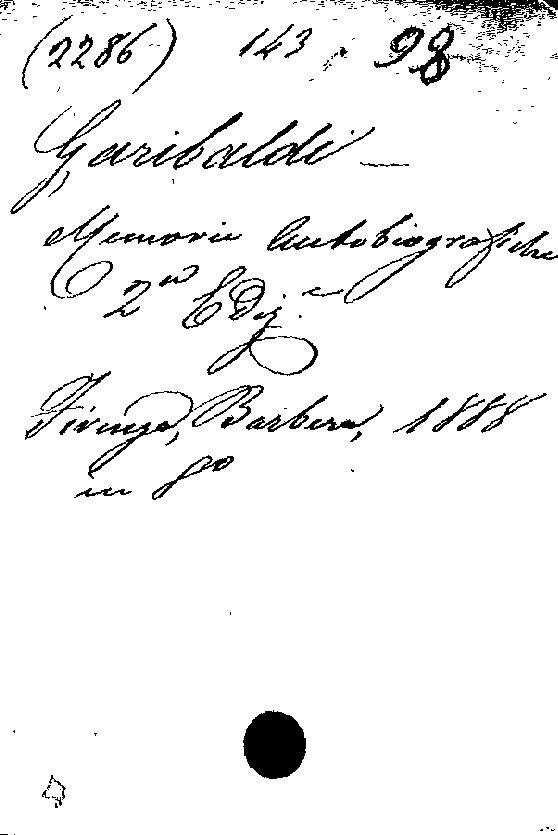 (2286) 143.98
Garibaldi —
Memorie Autobiografiche
2ª Ediz.e
Firenze, Barbera, 1888
in 8º